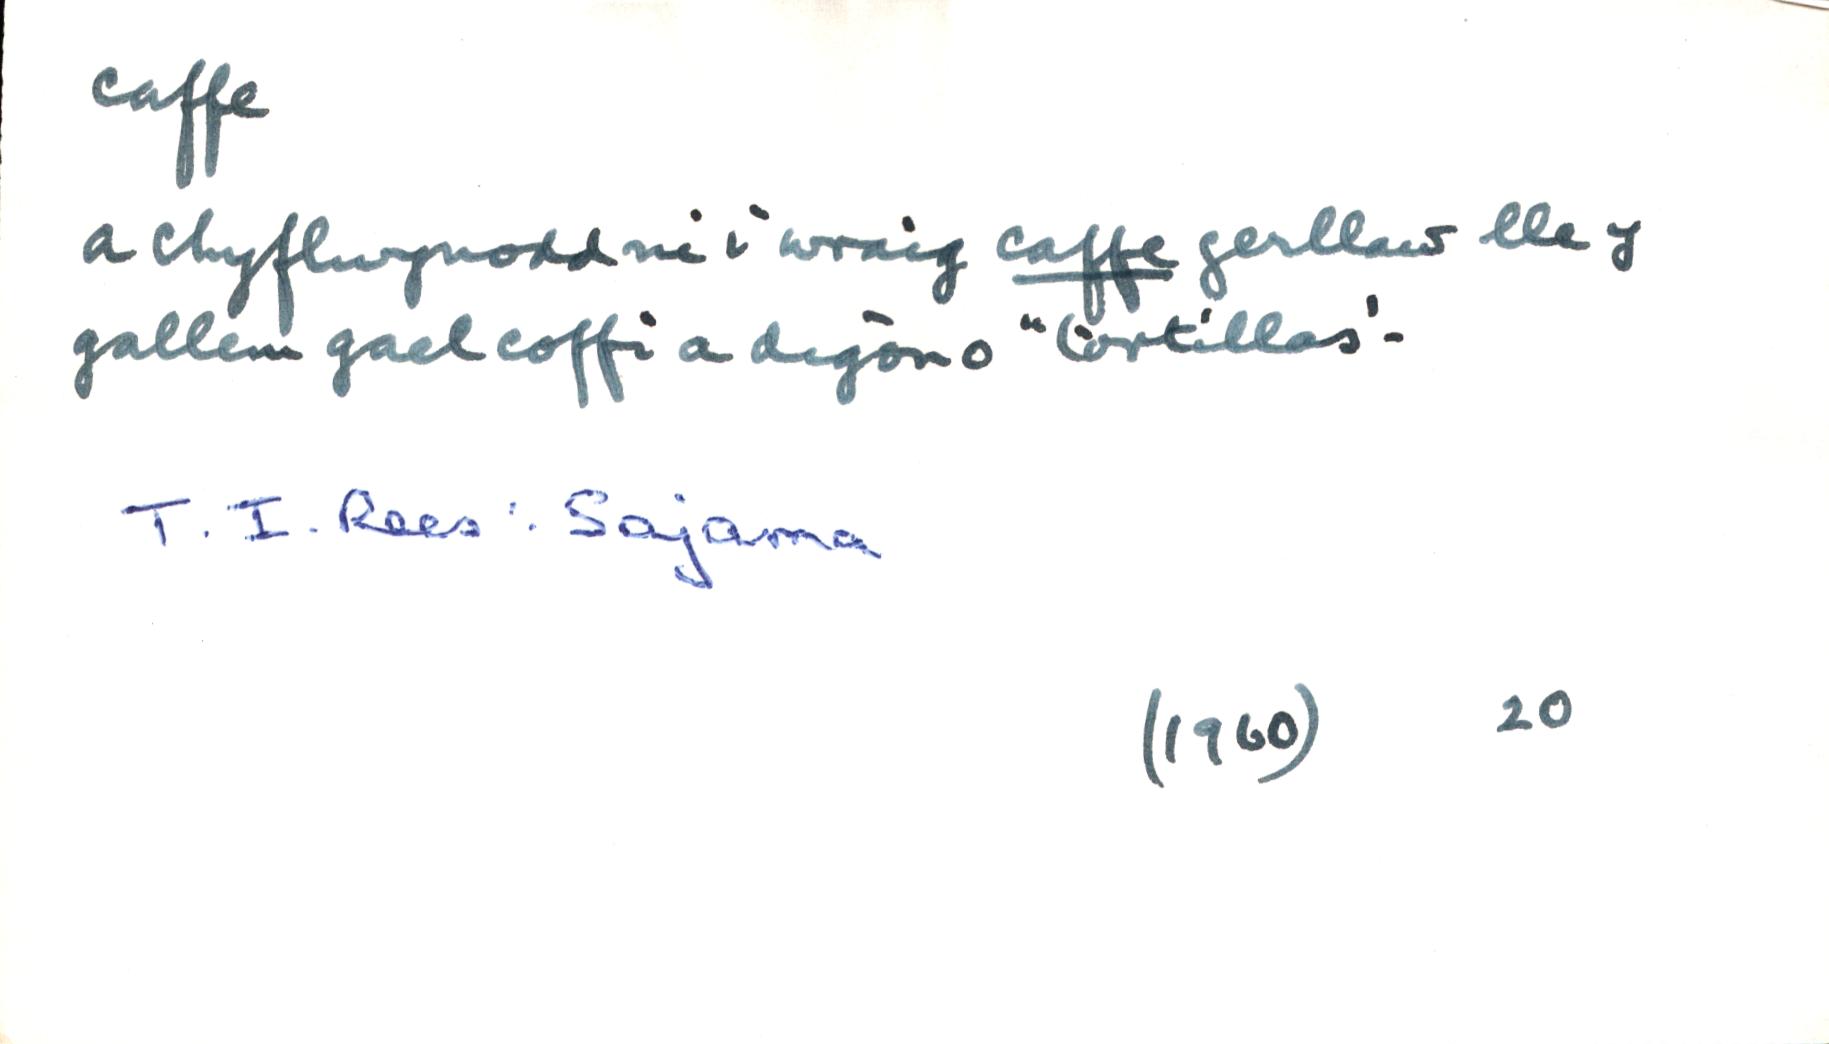 caffe
a chyflwynodd ni i wraig caffe gerllaw lle y
gallem gael coffi a digon o "tortillas'-
T. I. Rees: Sajama
(1960) 20